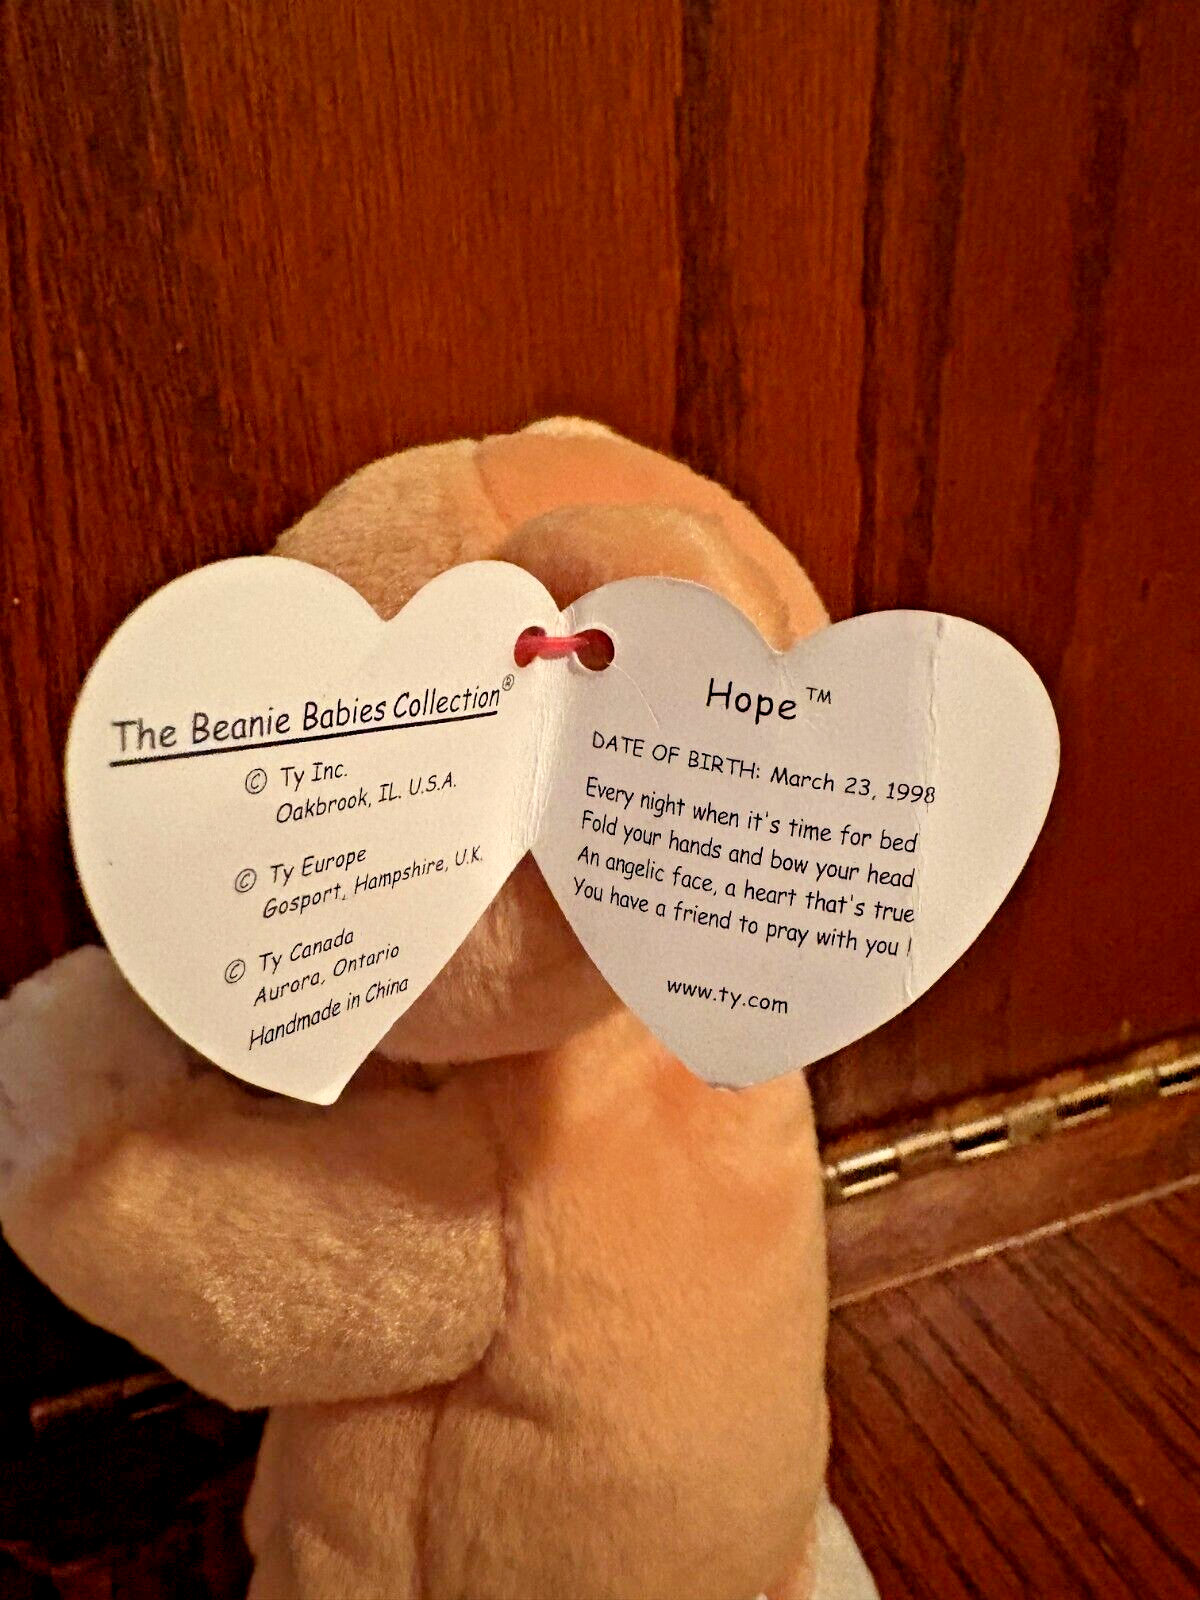 The Beanie Babies Collection®
© Ty Inc.
Oakbrook, IL. U.S.A.
© Ty Europe
Gosport, Hampshire, U.K.
© Ty Canada
Aurora, Ontario
Handmade in China
Hope™
DATE OF BIRTH: March 23, 1998
Every night when it's time for bed
Fold your hands and bow your head
An angelic face, a heart that's true
You have a friend to pray with you !
www.ty.com